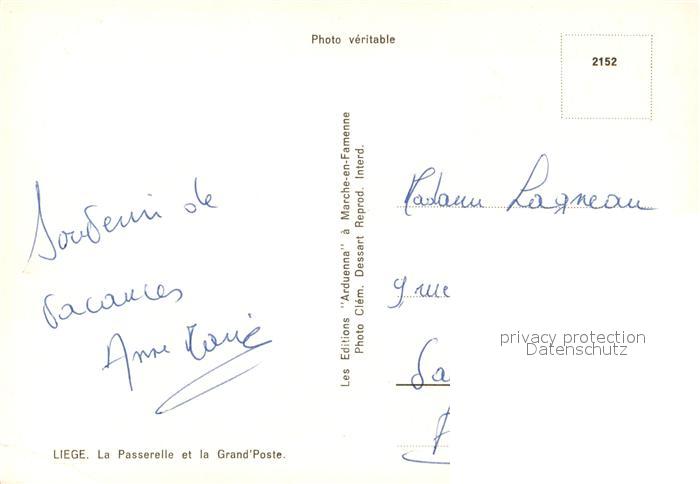 Photo véritable
2152
Souvenir de
vacances
Anne Marie
Les Editions "Arduenna" à Marche-en-Famenne
Photo Clém. Dessart Reprod. Interd.
Madame Lagneau
9 rue
privacy protection
Datenschutz
LIEGE. La Passerelle et la Grand'Poste.